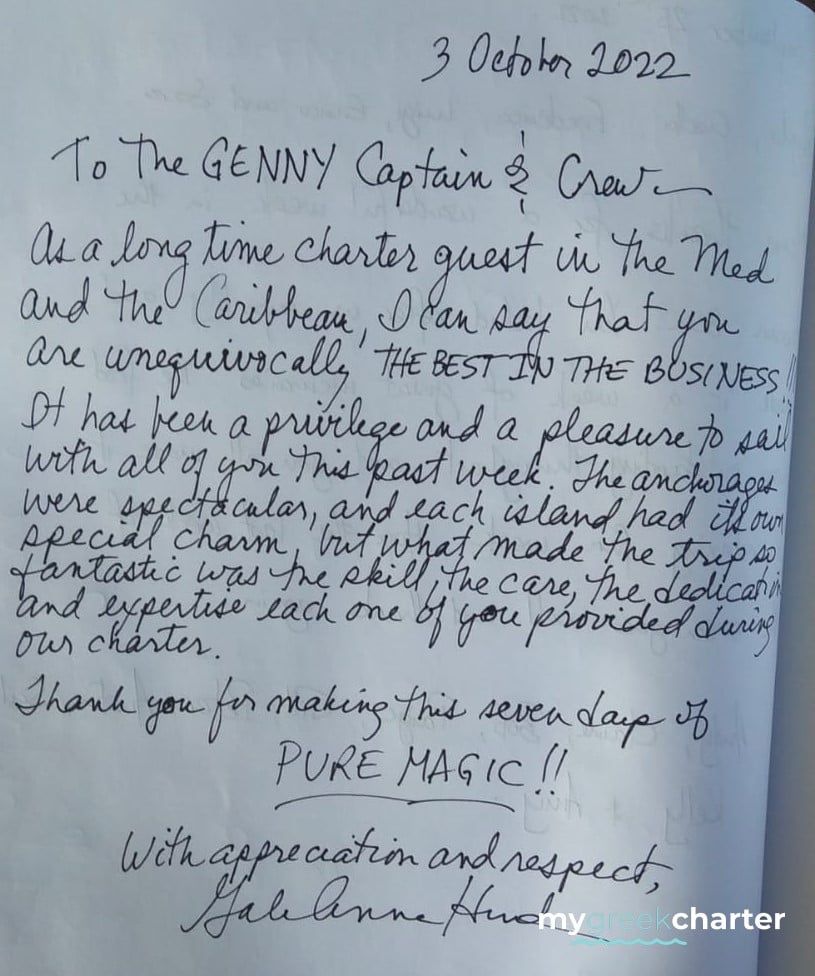 3 October 2022
To The GENNY Captain & Crew —
As a long time charter guest in the Med
and the Caribbean, I can say that you
are unequivocally THE BEST IN THE BUSINESS!!
It has been a privilege and a pleasure to sail
with all of you this past week. The anchorages
were spectacular, and each island had its own
special charm, but what made the trip so
fantastic was the skill, the care, the dedication
and expertise each one of you provided during
our charter.
Thank you for making this seven days of
PURE MAGIC!!
With appreciation and respect,
Gale Anne
mygreekcharter